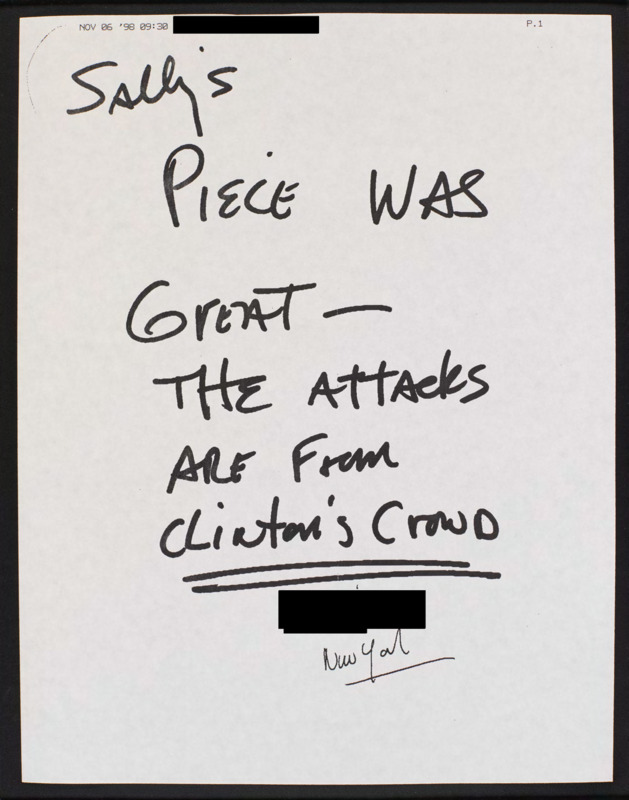 NOV 06 '98 09:30 P.1
Sally's
PIECE WAS
GREAT —
THE ATTACKS
ARE FROM
CLINTON'S CROWD
New York